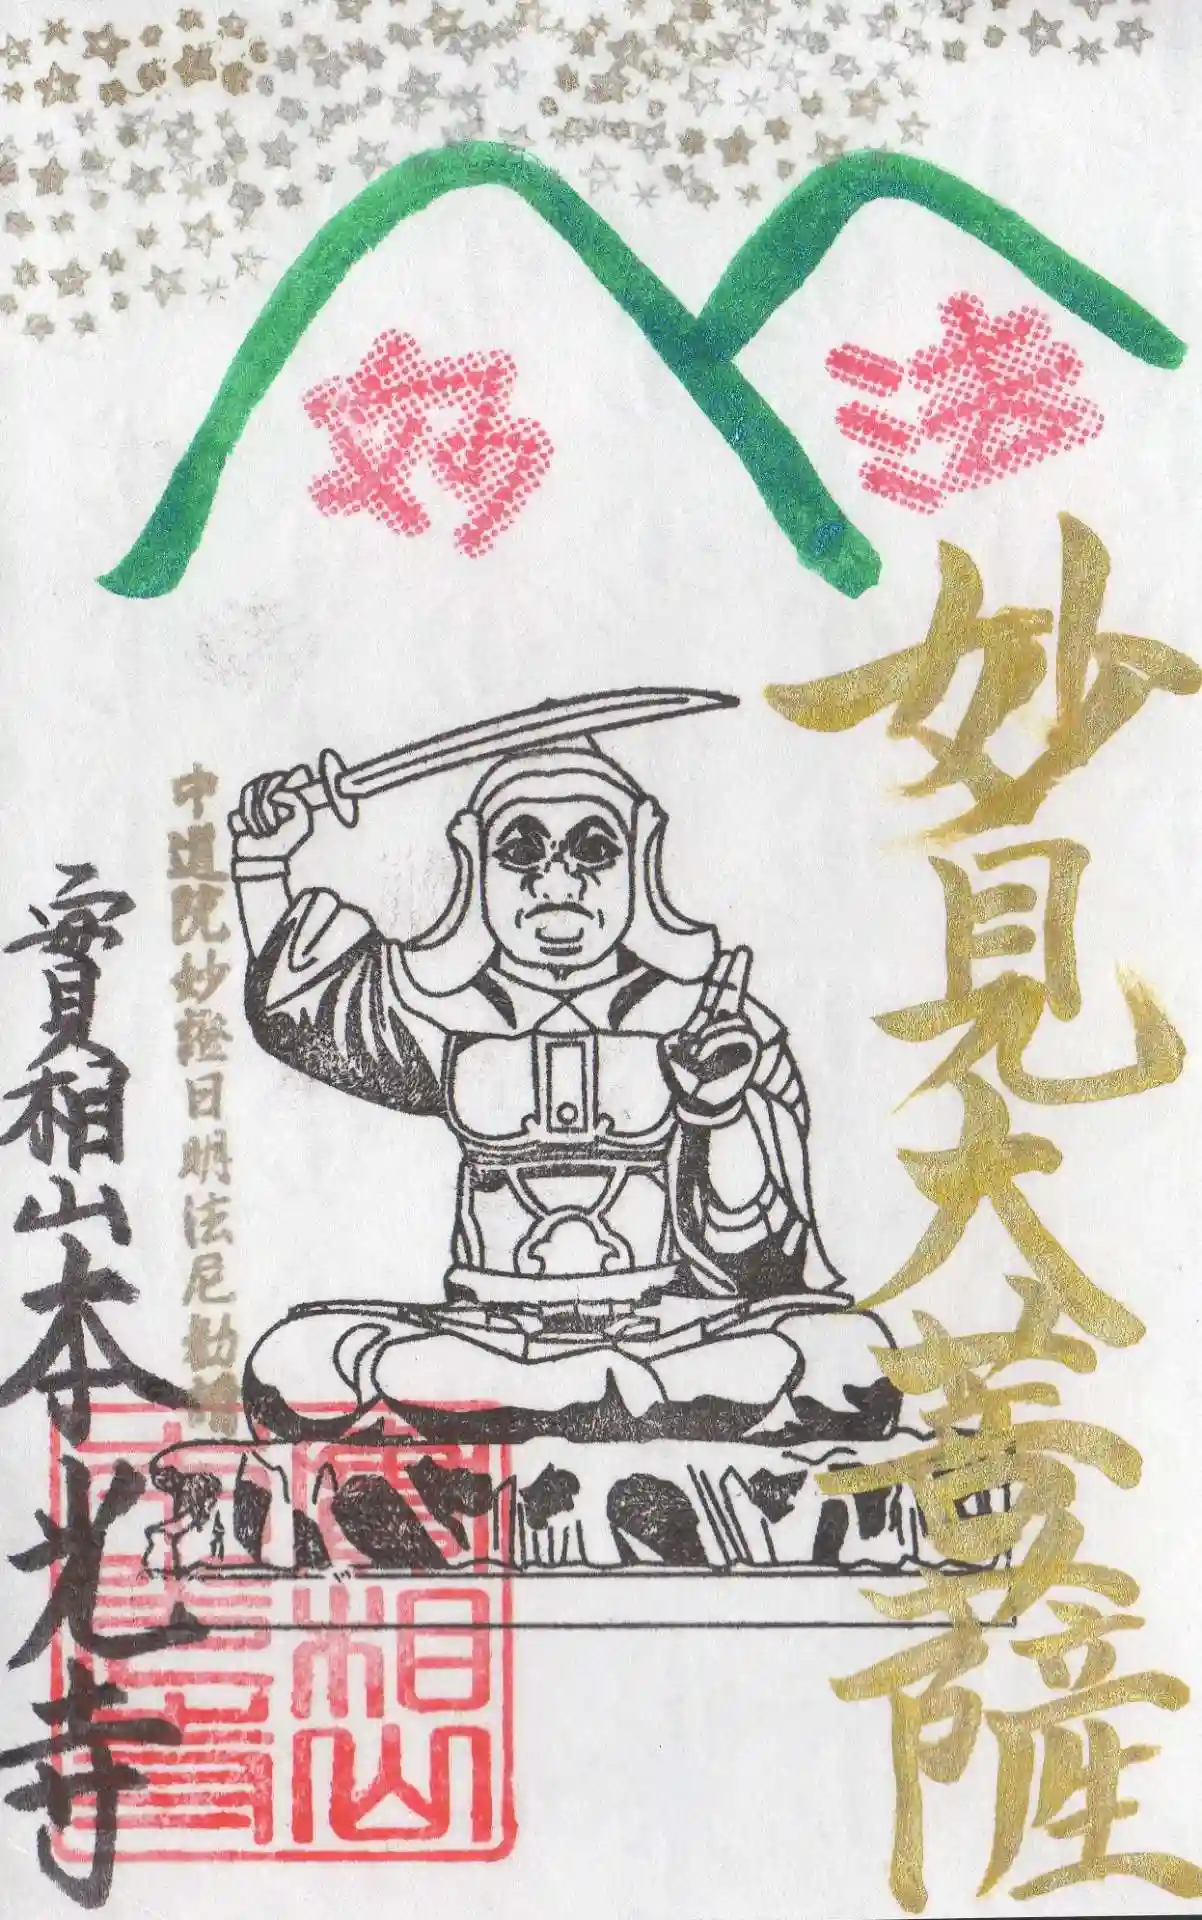 妙法
妙見大菩薩
中道院妙證日明法尼勧請
實相山本光寺
實相山